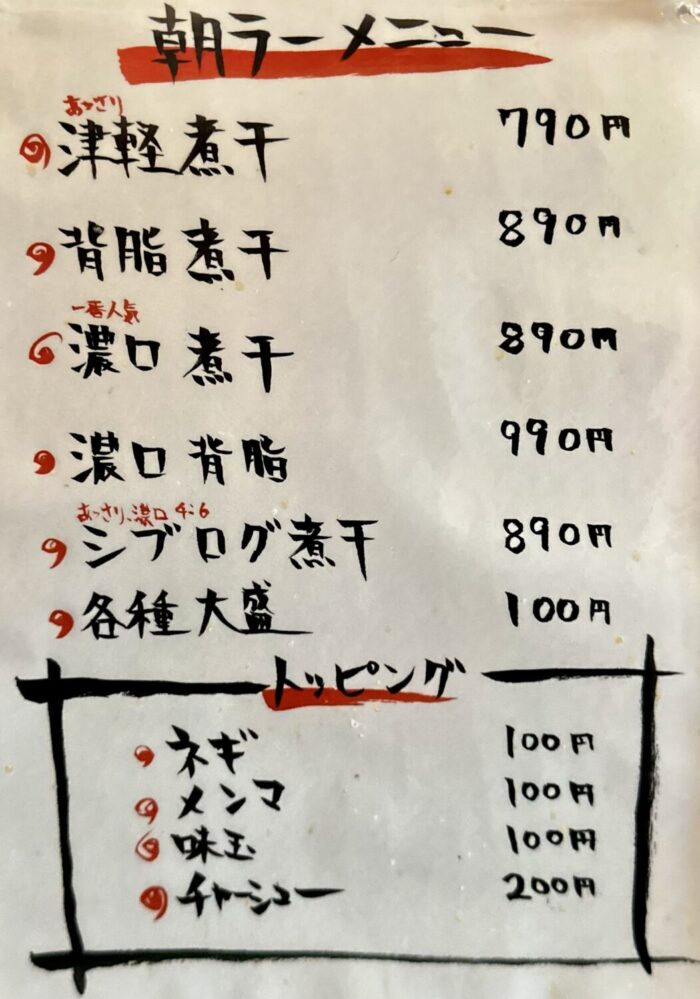 朝ラーメニュー
あっさり
津軽煮干 790円
背脂煮干 890円
一番人気
濃口煮干 890円
濃口背脂 990円
あっさり、濃口 4:6
シブログ煮干 890円
各種大盛 100円
トッピング
ネギ 100円
メンマ 100円
味玉 100円
チャーシュー 200円